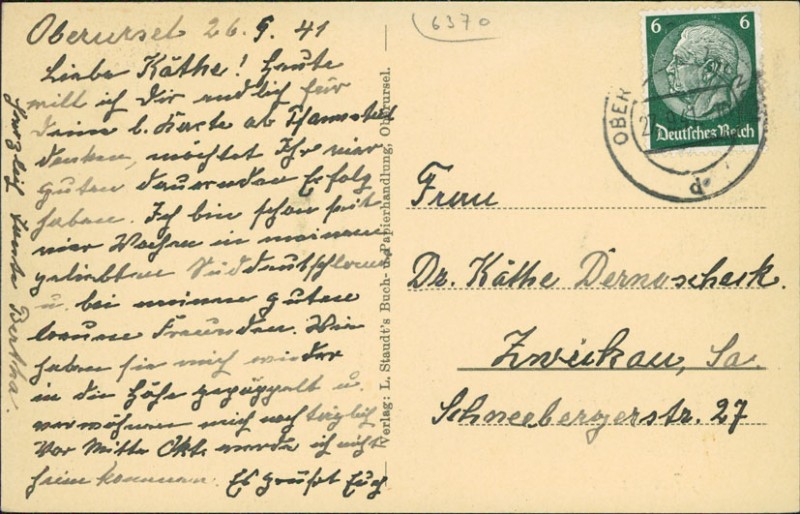 Oberursel 26.9.41
Liebe Käthe! Heute
will ich Dir endlich für
Deine l. Karte ab
danken, möchtet Ihr nur
guten dauernden Erfolg
haben. Ich bin schon seit
vier Wochen in meinem
geliebten Süddeutschland
u. bei meinen guten
treuen Freunden. Wie
haben sie mich wieder
in die Höhe gepäppelt u.
verwöhnen mich noch täglich
Vor Mitte Okt. werde ich nicht
heim kommen. Es grüßt Euch
herzlich Tante Bertha.
Verlag: L. Staudt's Buch- u. Papierhandlung, Oberursel.
6370
6 6
Deutsches Reich
OBER
d
Frau
Dr. Käthe Dernoscheck.
Zwickau, Sa.
Schneebergerstr. 27